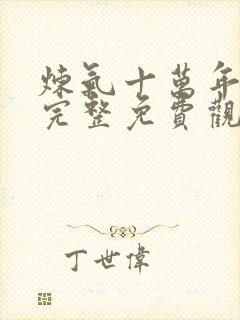 煉氣十萬年
完整免費觀
丁世偉